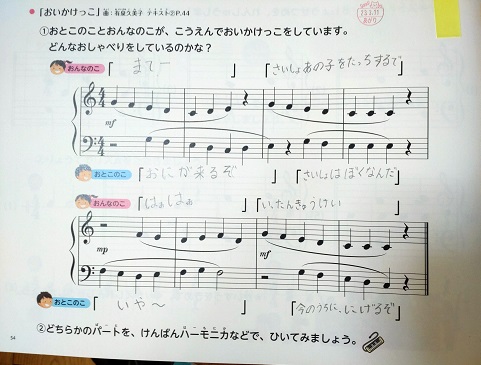 「おいかけっこ」 曲：有泉久美子 テキスト②P.44
①おとこのことおんなのこが、こうえんでおいかけっこをしています。
どんなおしゃべりをしているのかな？
おんなのこ 「まてー」 「さいしょあの子をたっちするで」
mf
おとこのこ 「おにが来るぞ」 「さいしょはぼくなんだ」
おんなのこ 「はぁはぁ」 「いったんきゅうけい」
mp mf
おとこのこ 「いや〜 」 「今のうちに、にげるぞ」
②どちらかのパートを、けんばんハーモニカなどで、ひいてみましょう。
54